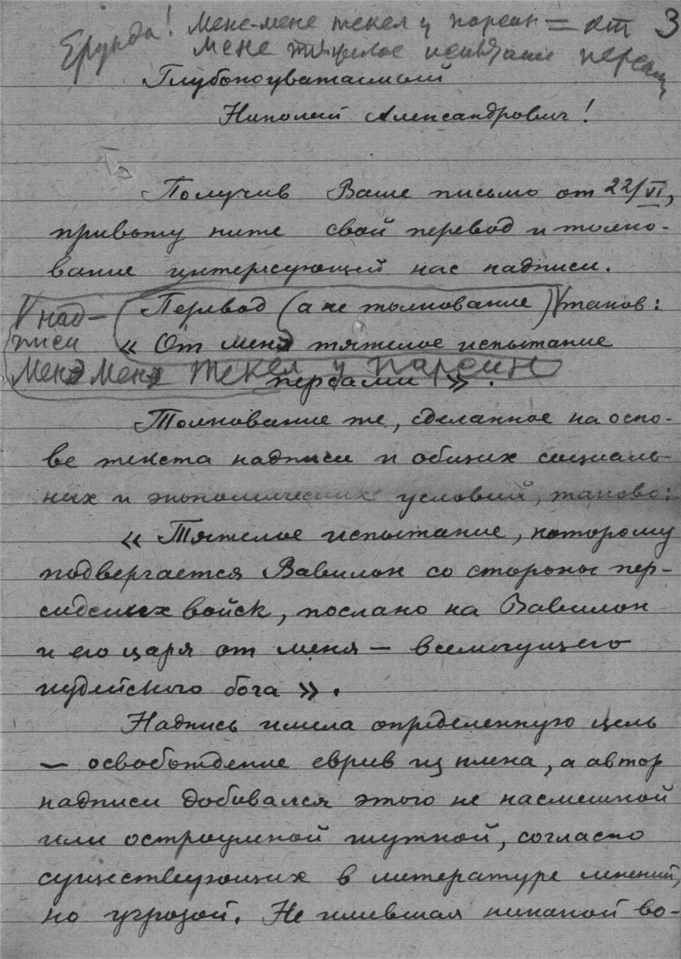 Ерунда! Мене-мене текел у парсин = от 3
мене тяжелое испытание персами
Глубокоуважаемый
Николай Александрович!
Получив Ваше письмо от 22/VI,
привожу ниже свой перевод и толко-
вание интересующей нас надписи.
Перевод (а не толкование) V таков:
V над-
писи
« От меня тяжелое испытание
Менэ Менэ текел у парсин
персами ».
Толкование же, сделанное на осно-
ве текста надписи и общих социаль-
ных и экономических условий, таково:
« Тяжелое испытание, которому
подвергается Вавилон со стороны пер-
сидских войск, послано на Вавилон
и его царя от меня — всемогущего
иудейского бога ».
Надпись имела определенную цель
— освобождение еврев из плена, а автор
надписи добивался этого не насмешкой
или остроумной шуткой, согласно
существующих в литературе мнений,
но угрозой. Не имевшая никакой во-